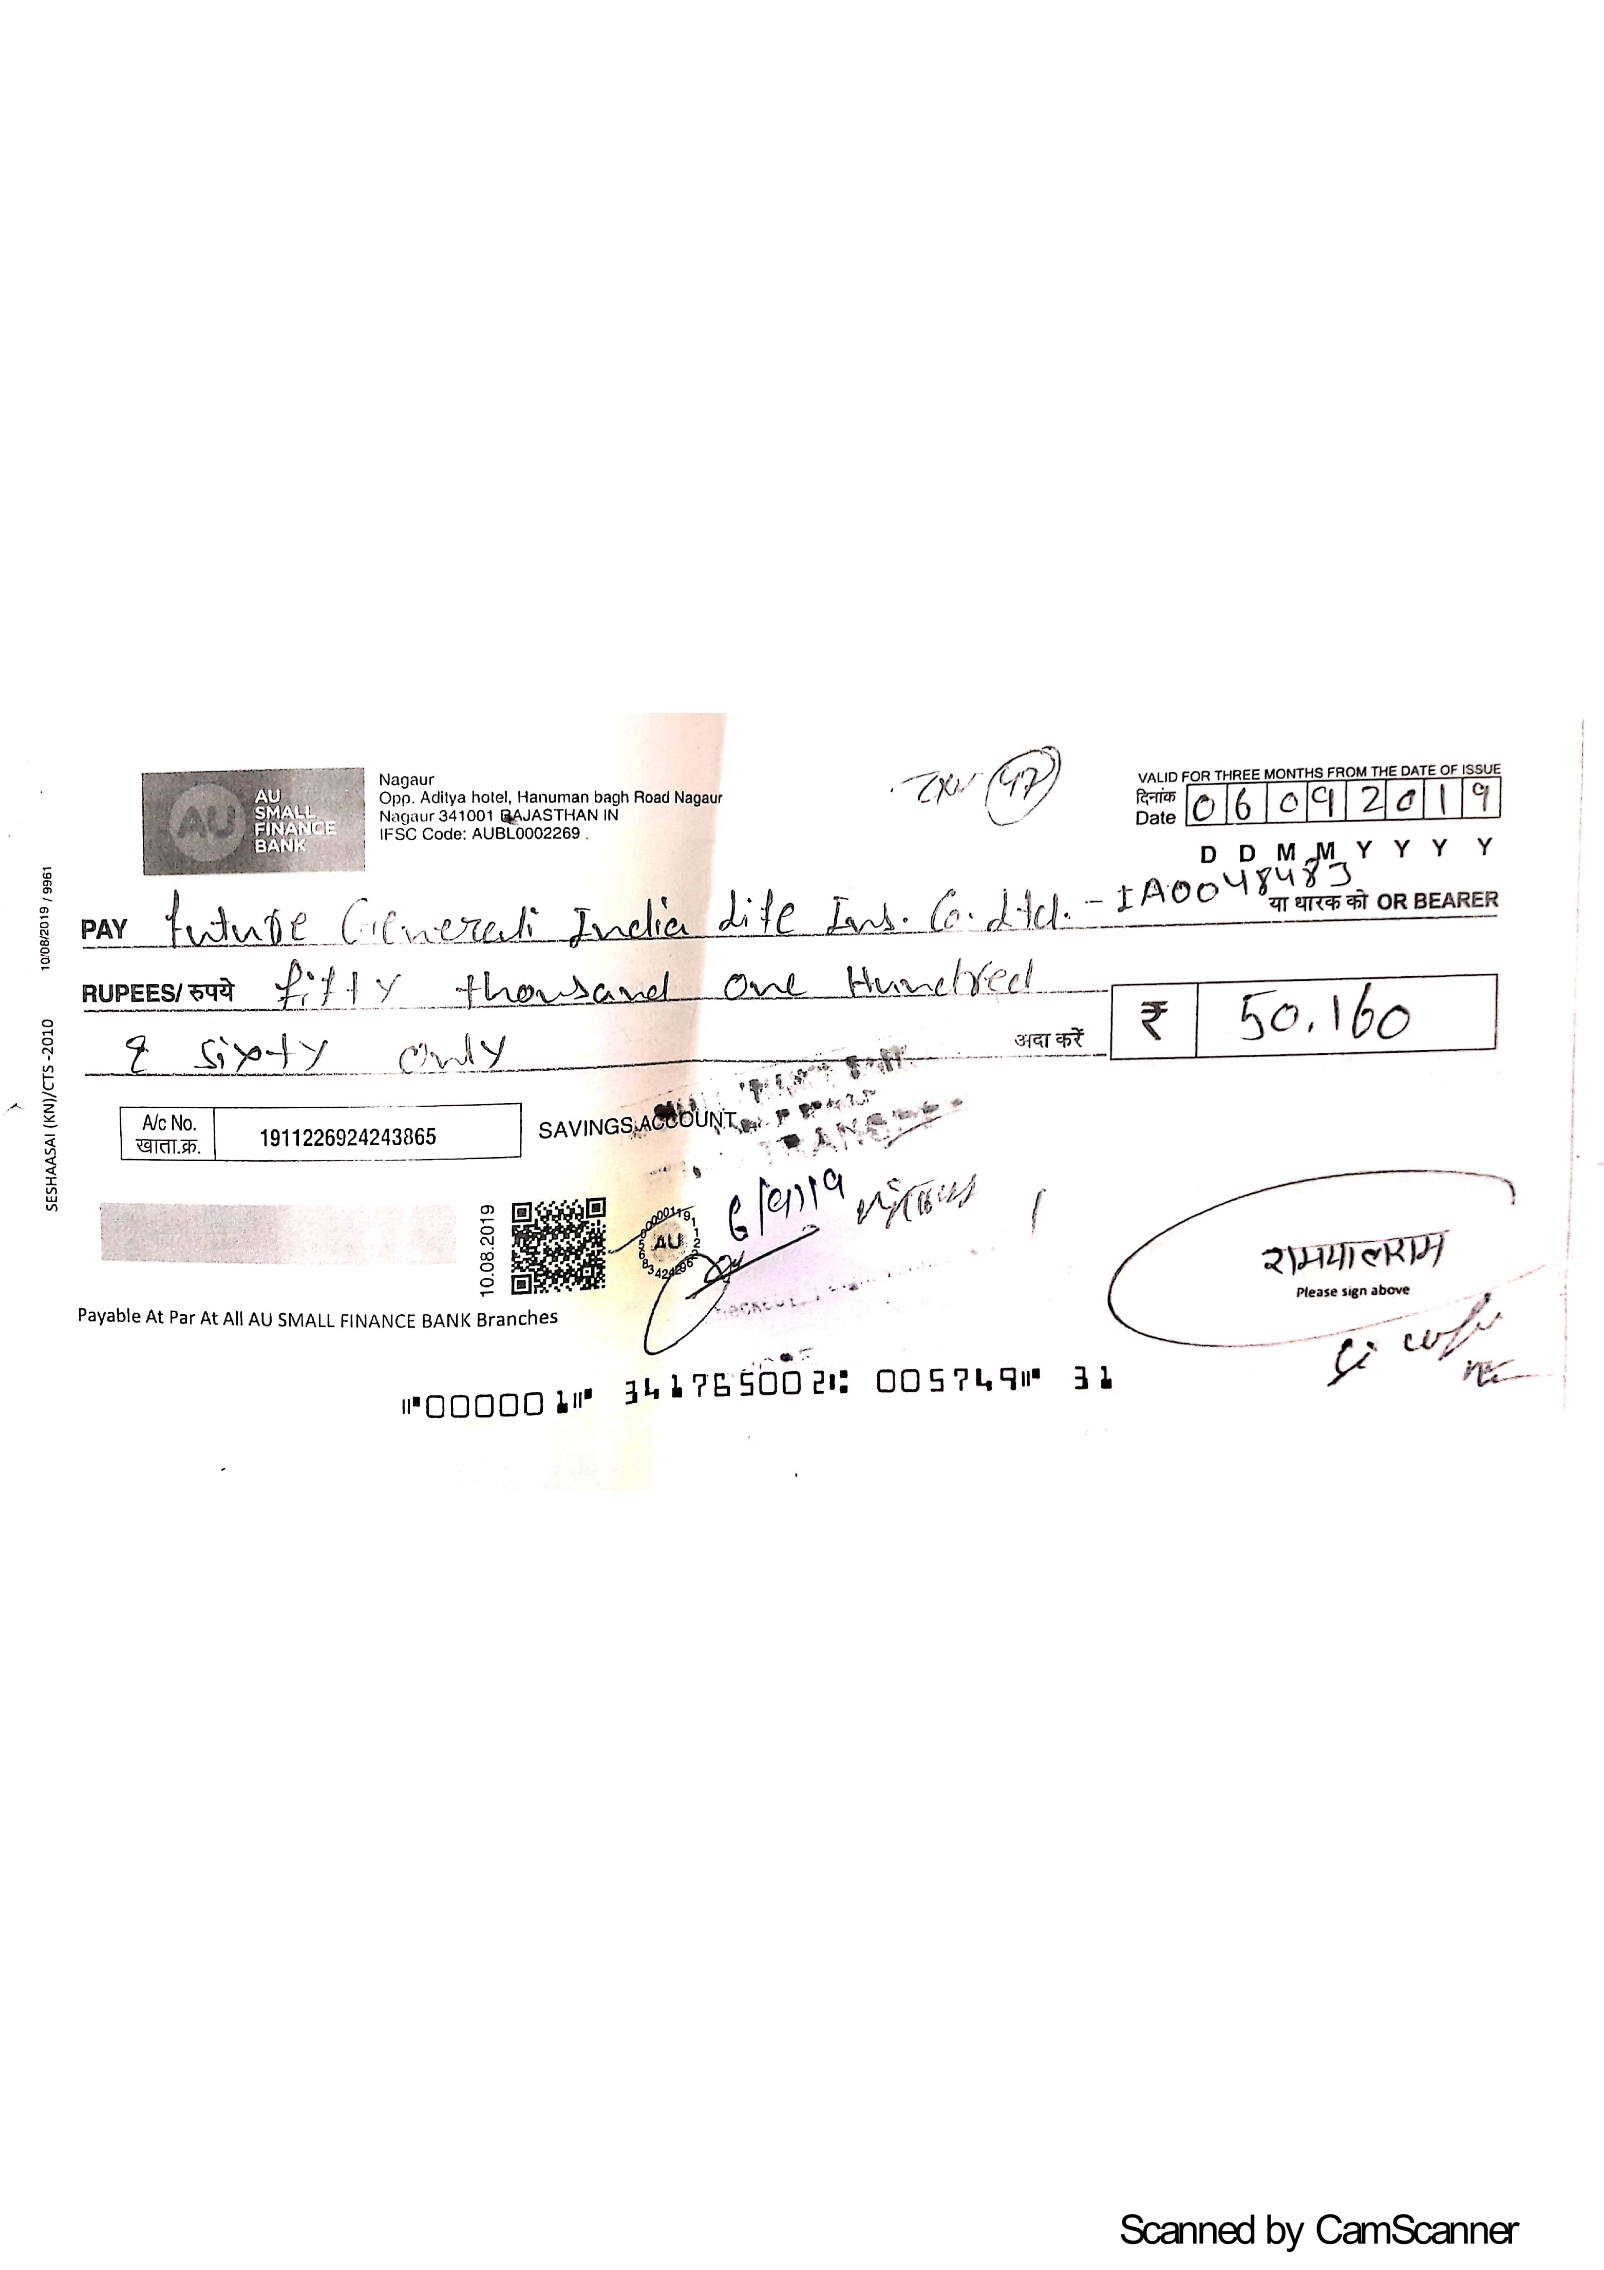 AU
AU
SMALL
FINANCE
BANK
Nagaur
Opp. Aditya hotel, Hanuman bagh Road Nagaur
Nagaur 341001 RAJASTHAN IN
IFSC Code: AUBL0002269
47
VALID FOR THREE MONTHS FROM THE DATE OF ISSUE
दिनांक
Date 06092019
D D M M Y Y Y Y
PAY Future Generali India Life Ins. Co. Ltd. - IA0048483
या धारक को OR BEARER
RUPEES/ रुपये fifty thousand one Hundred
₹ 50,160
& sixty only अदा करें
A/c No.
खाता.क्र.
1911226924243865
SAVINGS ACCOUNT
TRANS
6/9/19
10.08.2019
AU
रामपालराम
Please sign above
Payable At Par At All AU SMALL FINANCE BANK Branches
⑈000001⑈ 341765002⑆ 005749⑈ 31
SESHAASAI (KN)/CTS -2010 10/08/2019 / 9961
Scanned by CamScanner